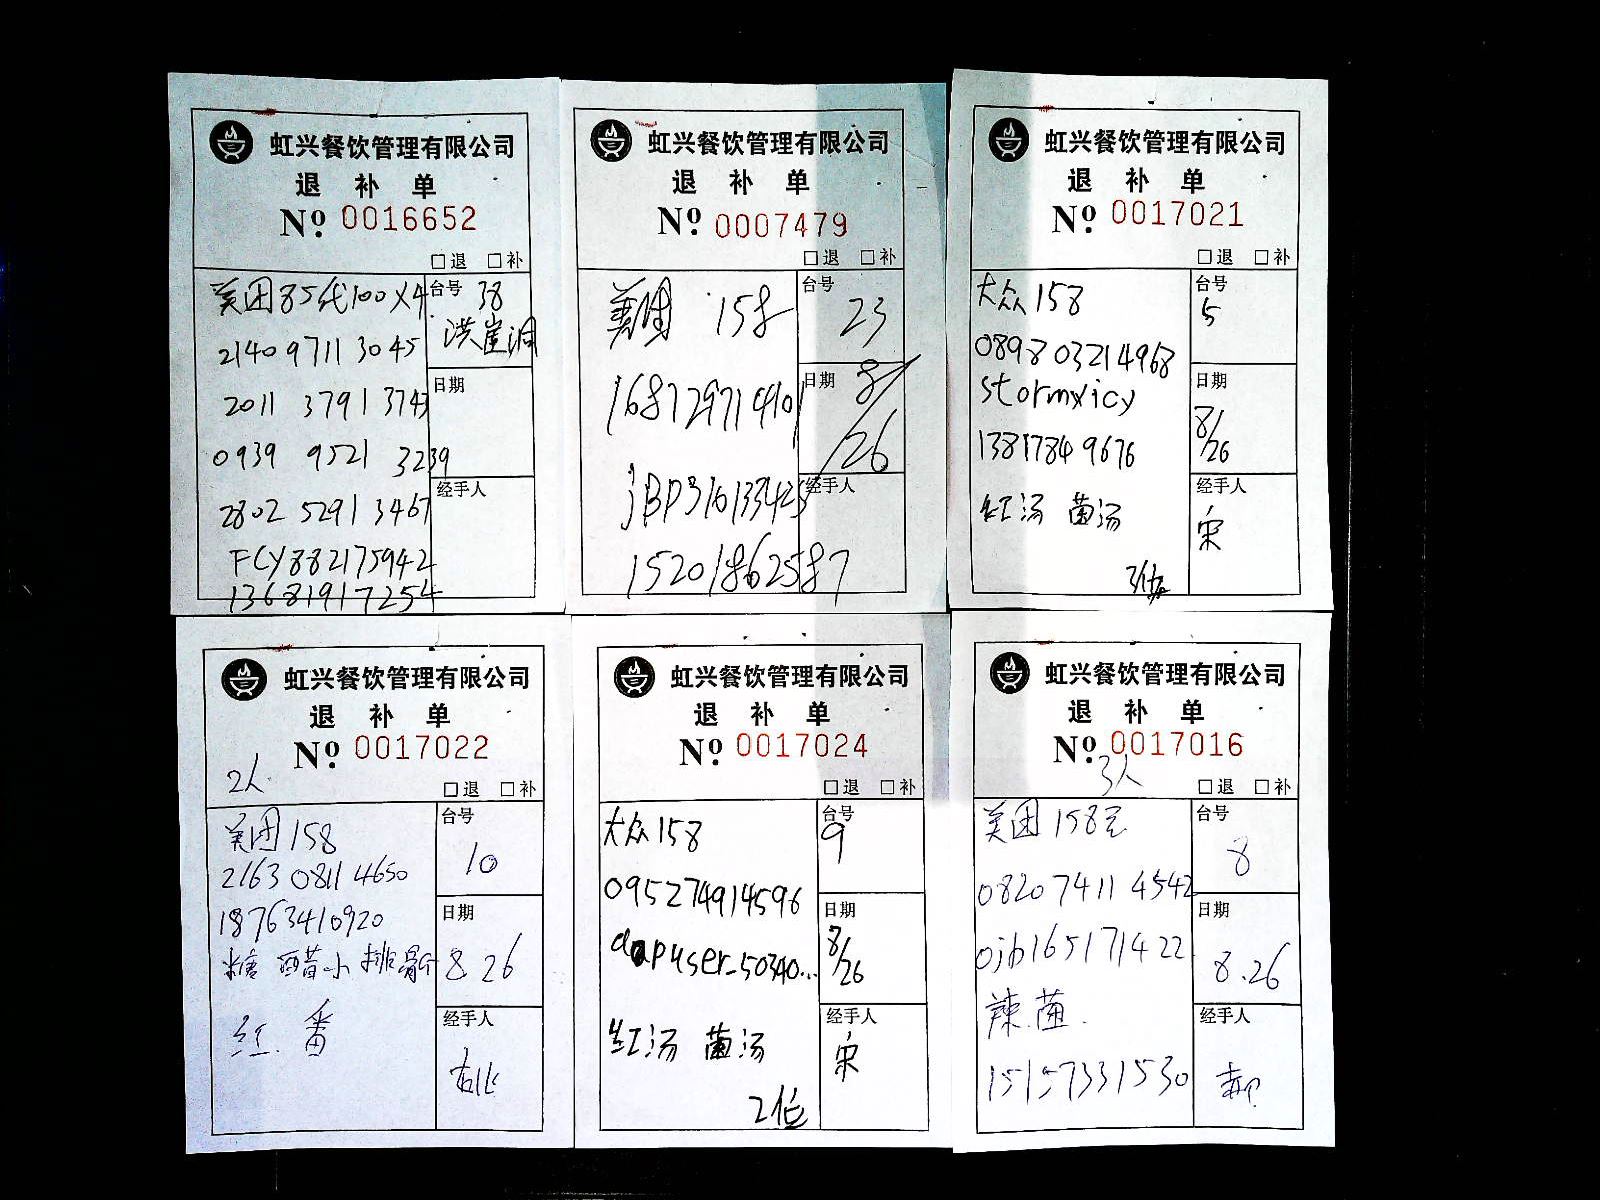 虹兴餐饮管理有限公司
退 补 单
Nº. 0016652
□退 □补
美团85代100X4
2140 9711 3045
2011 3791 3743
0939 9521 3239
2802 5291 3467
FCY882175942
13681917254
台号 38
洪崖洞
日期
经手人
虹兴餐饮管理有限公司
退 补 单
Nº. 0007479
□退 □补
美团 158
168729714901
jBP316133425
15201862587
台号
23
日期 8/
/26
经手人
虹兴餐饮管理有限公司
退 补 单
Nº. 0017021
□退 □补
大众158
0898 03214968
stormxicy
13817849676
红汤 菌汤
3位
台号
5
日期
8/
/26
经手人
宋
虹兴餐饮管理有限公司
退 补 单
Nº. 0017022
2人
□退 □补
美团158
2163 0811 4650
18763410920
糖醋小排骨
红 番
台号
10
日期
8 26
经手人
虹兴餐饮管理有限公司
退 补 单
Nº. 0017024
□退 □补
大众158
095274914596
dapuser_50340...
红汤 菌汤
2位
台号
9
日期
8/
/26
经手人
宋
虹兴餐饮管理有限公司
退 补 单
Nº. 0017016
3人
□退 □补
美团158元
0820 7411 4542
ojb165171422
辣 菌
15157331530
台号
8
日期
8.26
经手人